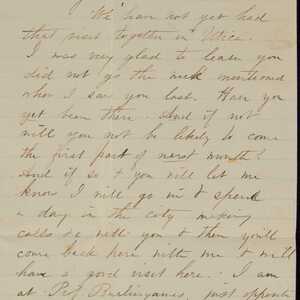 We have not yet had
that visit together in Utica.
I was very glad to learn you
did not go the week mentioned
when I saw you last. Have you
yet been there. And if not
will you not be likely to come
the first part of next month?
And if so & you will let me
know I will go in & spend
a day in the city making
calls &c with you & then you'll
come back here with me & we'll
have a good visit here. I am
at Prof Burlingames, just opposite